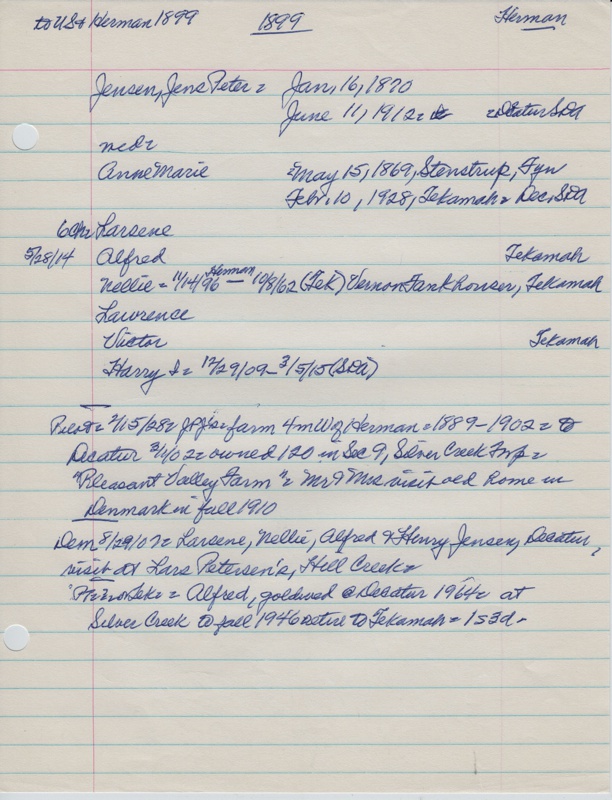 to US & Herman 1899 1899 Herman
Jensen, Jens Peter = Jan, 16, 1870
June 11, 1912 = = Decatur SDA
med =
Anne Marie = May 15, 1869, Stenstrup, Fyn
Febr. 10, 1928, Tekamah = Dec, SDA
6 Ch = Larsene
5/28/14 Alfred Tekamah
Nellie = 11/14/96 Herman — 10/8/62 (Tek) Vernon Fankhouser, Tekamah
Lawrence
Victor Tekamah
Harry I = 12/29/09 - 3/5/15 (SDA)
2/15/28 = = farm 4 m W of Herman = 1889 - 1902 = to
Decatur 3/1/02 = owned 120 in Sec 9, Silver Creek Twp =
"Pleasant Valley Farm" = Mr & Mrs visit old home in
Denmark in fall 1910
Dem 8/29/07 = Larsene, Nellie, Alfred & Henry Jensen, Decatur,
visit at Lars Petersen's, Hill Creek =
= Alfred, gold wed @ Decatur 1964 = at
Silver Creek to fall 1946 retire to Tekamah = 1 s 3 d -